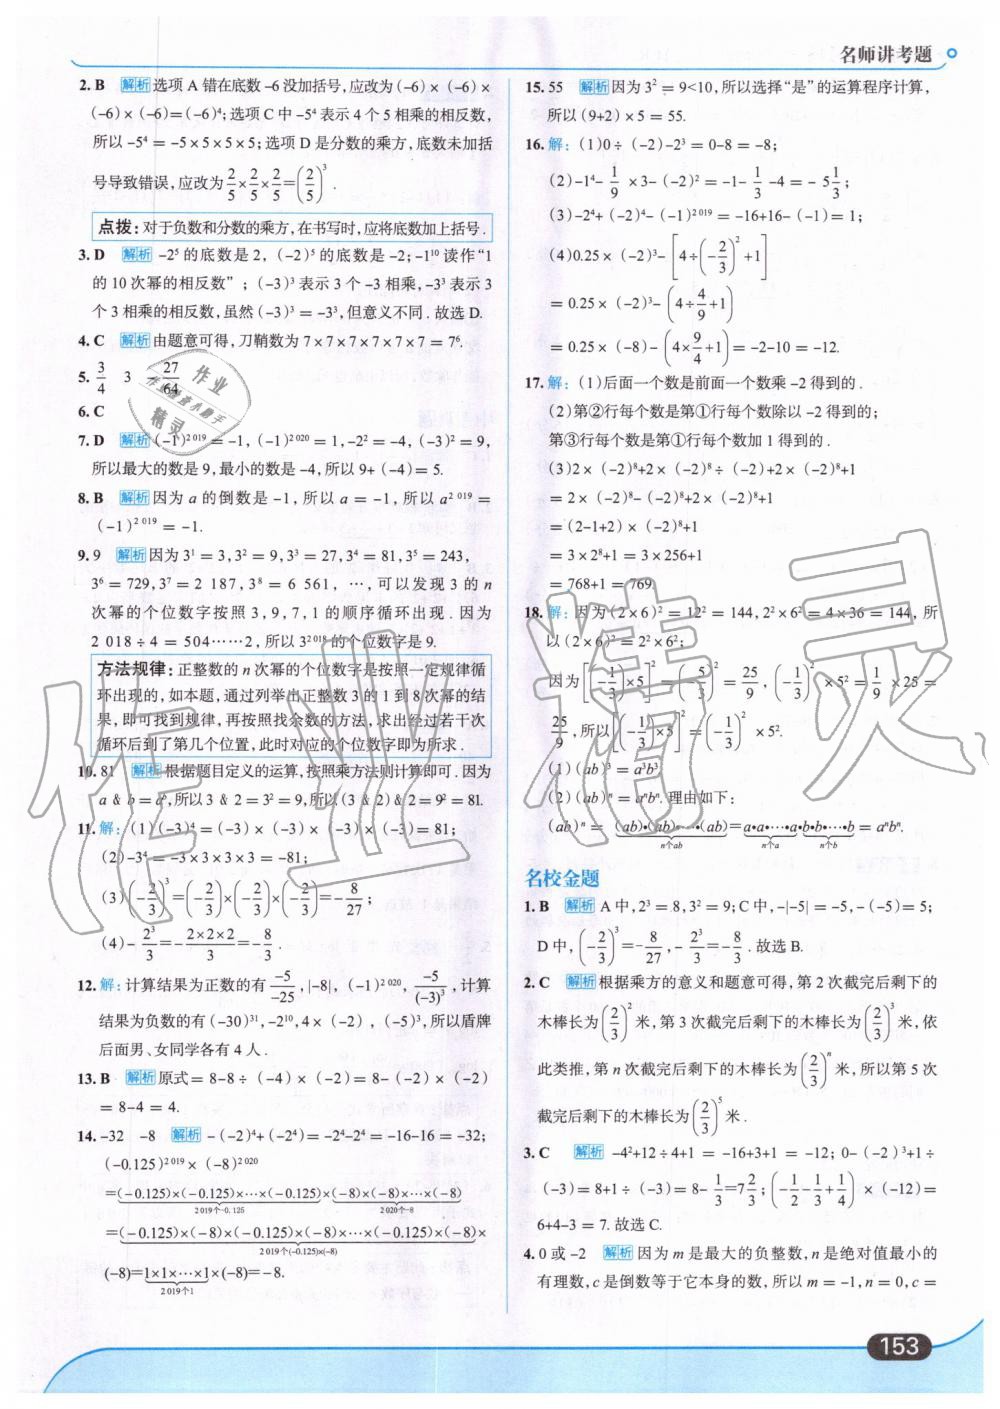 名师讲考题
2. B 解析 选项 A 错在底数 -6 没加括号,应改为(-6)×(-6)×
(-6)×(-6)=(-6)⁴;选项 C 中 -5⁴ 表示 4 个 5 相乘的相反数,
所以 -5⁴ = -5×5×5×5;选项 D 是分数的乘方,底数未加括
号导致错误,应改为 2/5×2/5×2/5=(2/5)³.
点拨:对于负数和分数的乘方,在书写时,应将底数加上括号.
3. D 解析 -2⁵ 的底数是 2,(-2)⁵ 的底数是 -2;-1¹⁰ 读作“1
的 10 次幂的相反数”;(-3)³ 表示 3 个 -3 相乘,-3³ 表示 3
个 3 相乘的相反数,虽然(-3)³ = -3³,但意义不同.故选 D.
4. C 解析 由题意可得,刀鞘数为 7×7×7×7×7×7=7⁶.
5. 3/4 3 -27/64
6. C
7. D 解析 (-1)²⁰¹⁹ = -1,(-1)²⁰²⁰ = 1,-2² = -4,(-3)² = 9,
所以最大的数是 9,最小的数是 -4,所以 9+(-4)= 5.
8. B 解析 因为 a 的倒数是 -1,所以 a = -1,所以 a²⁰¹⁹ =
(-1)²⁰¹⁹ = -1.
9. 9 解析 因为 3¹ = 3,3² = 9,3³ = 27,3⁴ = 81,3⁵ = 243,
3⁶ = 729,3⁷ = 2 187,3⁸ = 6 561,…,可以发现 3 的 n
次幂的个位数字按照 3,9,7,1 的顺序循环出现.因为
2 018÷4 = 504……2,所以 3²⁰¹⁸ 的个位数字是 9.
方法规律:正整数的 n 次幂的个位数字是按照一定规律循
环出现的,如本题,通过列举出正整数 3 的 1 到 8 次幂的结
果,即可找到规律,再按照找余数的方法,求出经过若干次
循环后到了第几个位置,此时对应的个位数字即为所求.
10. 81 解析 根据题目定义的运算,按照乘方法则计算即可.因为
a & b = aᵇ,所以 3 & 2 = 3² = 9,所以(3 & 2) & 2 = 9² = 81.
11. 解:(1)(-3)⁴ =(-3)×(-3)×(-3)×(-3)= 81;
(2)-3⁴ = -3×3×3×3 = -81;
(3)(-2/3)³=(-2/3)×(-2/3)×(-2/3)=-8/27;
(4)-2³/3=-2×2×2/3=-8/3.
12. 解:计算结果为正数的有 -5/-25,|-8|,(-1)²⁰²⁰,-5/(-3)³,计算
结果为负数的有(-30)³¹,-2¹⁰,4×(-2),(-5)³,所以盾牌
后面男、女同学各有 4 人.
13. B 解析 原式 = 8-8÷(-4)×(-2)= 8-(-2)×(-2)
= 8-4 = 4.
14. -32 -8 解析 -(-2)⁴+(-2⁴)= -2⁴-2⁴ = -16-16 = -32;
(-0.125)²⁰¹⁹×(-8)²⁰²⁰
=(-0.125)×(-0.125)×…×(-0.125)×(-8)×(-8)×…×(-8)
2 019个-0.125 2 020个-8
=(-0.125)×(-8)×(-0.125)×(-8)×…×(-0.125)×(-8)×
2 019个(-0.125)×(-8)
(-8)=1×1×…×1×(-8)=-8.
2 019个1
15. 55 解析 因为 3² = 9<10,所以选择“是”的运算程序计算,
所以(9+2)×5 = 55.
16. 解:(1)0÷(-2)-2³ = 0-8 = -8;
(2)-1⁴-1/9×3-(-2)² = -1-1/3-4 = -5 1/3;
(3)-2⁴+(-2)⁴-(-1)²⁰¹⁹ = -16+16-(-1)= 1;
(4)0.25×(-2)³-[4÷(-2/3)²+1]
= 0.25×(-2)³-(4÷4/9+1)
= 0.25×(-8)-(4×9/4+1)= -2-10 = -12.
17. 解:(1)后面一个数是前面一个数乘 -2 得到的.
(2)第②行每个数是第①行每个数除以 -2 得到的;
第③行每个数是第①行每个数加 1 得到的.
(3)2×(-2)⁸+2×(-2)⁸÷(-2)+2×(-2)⁸+1
= 2×(-2)⁸-(-2)⁸+2×(-2)⁸+1
=(2-1+2)×(-2)⁸+1
= 3×2⁸+1 = 3×256+1
= 768+1 = 769.
18. 解:因为(2×6)² = 12² = 144,2²×6² = 4×36 = 144,所
以(2×6)² = 2²×6²;
因为[(-1/3)×5]²=(-5/3)²=25/9,(-1/3)²×5²=1/9×25=
25/9,所以[(-1/3)×5]²=(-1/3)²×5².
(1)(ab)³ = a³b³.
(2)(ab)ⁿ = aⁿbⁿ.理由如下:
(ab)ⁿ = (ab)•(ab)•…•(ab)=a•a•…•a•b•b•…•b = aⁿbⁿ.
n个ab n个a n个b
名校金题
1. B 解析 A 中,2³ = 8,3² = 9;C 中,-|-5| = -5,-(-5)= 5;
D 中,(-2/3)³=-8/27,-2³/3=-8/3.故选 B.
2. C 解析 根据乘方的意义和题意可得,第 2 次截完后剩下的
木棒长为(2/3)²米,第 3 次截完后剩下的木棒长为(2/3)³米,依
此类推,第 n 次截完后剩下的木棒长为(2/3)ⁿ米,所以第 5 次
截完后剩下的木棒长为(2/3)⁵米.
3. C 解析 -4²+12÷4+1 = -16+3+1 = -12;0-(-2)³+1÷
(-3)= 8+1÷(-3)= 8-1/3=7 2/3;(-1/2-1/3+1/4)×(-12)=
6+4-3 = 7.故选 C.
4. 0 或 -2 解析 因为 m 是最大的负整数,n 是绝对值最小的
有理数,c 是倒数等于它本身的数,所以 m = -1,n = 0,c =
153
作业精灵